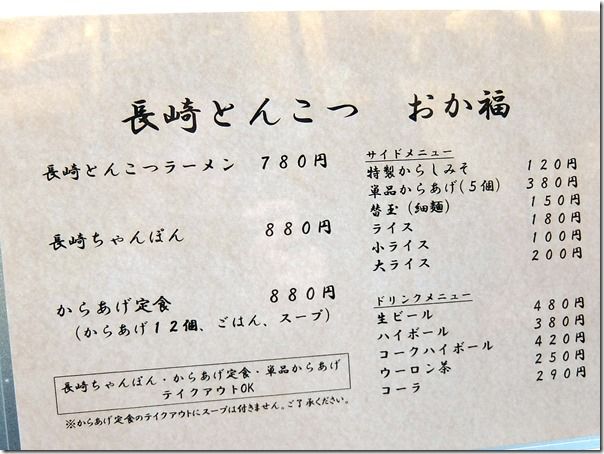 長崎とんこつ　おか福
長崎とんこつラーメン　780円
長崎ちゃんぽん　880円
からあげ定食　880円
(からあげ12個、ごはん、スープ)
長崎ちゃんぽん・からあげ定食・単品からあげ
テイクアウトOK
※からあげ定食のテイクアウトにスープは付きません。ご了承ください。
サイドメニュー
特製からしみそ　120円
単品からあげ(5個)　380円
替玉(細麺)　150円
ライス　180円
小ライス　100円
大ライス　200円
ドリンクメニュー
生ビール　480円
ハイボール　380円
コークハイボール　420円
ウーロン茶　250円
コーラ　290円